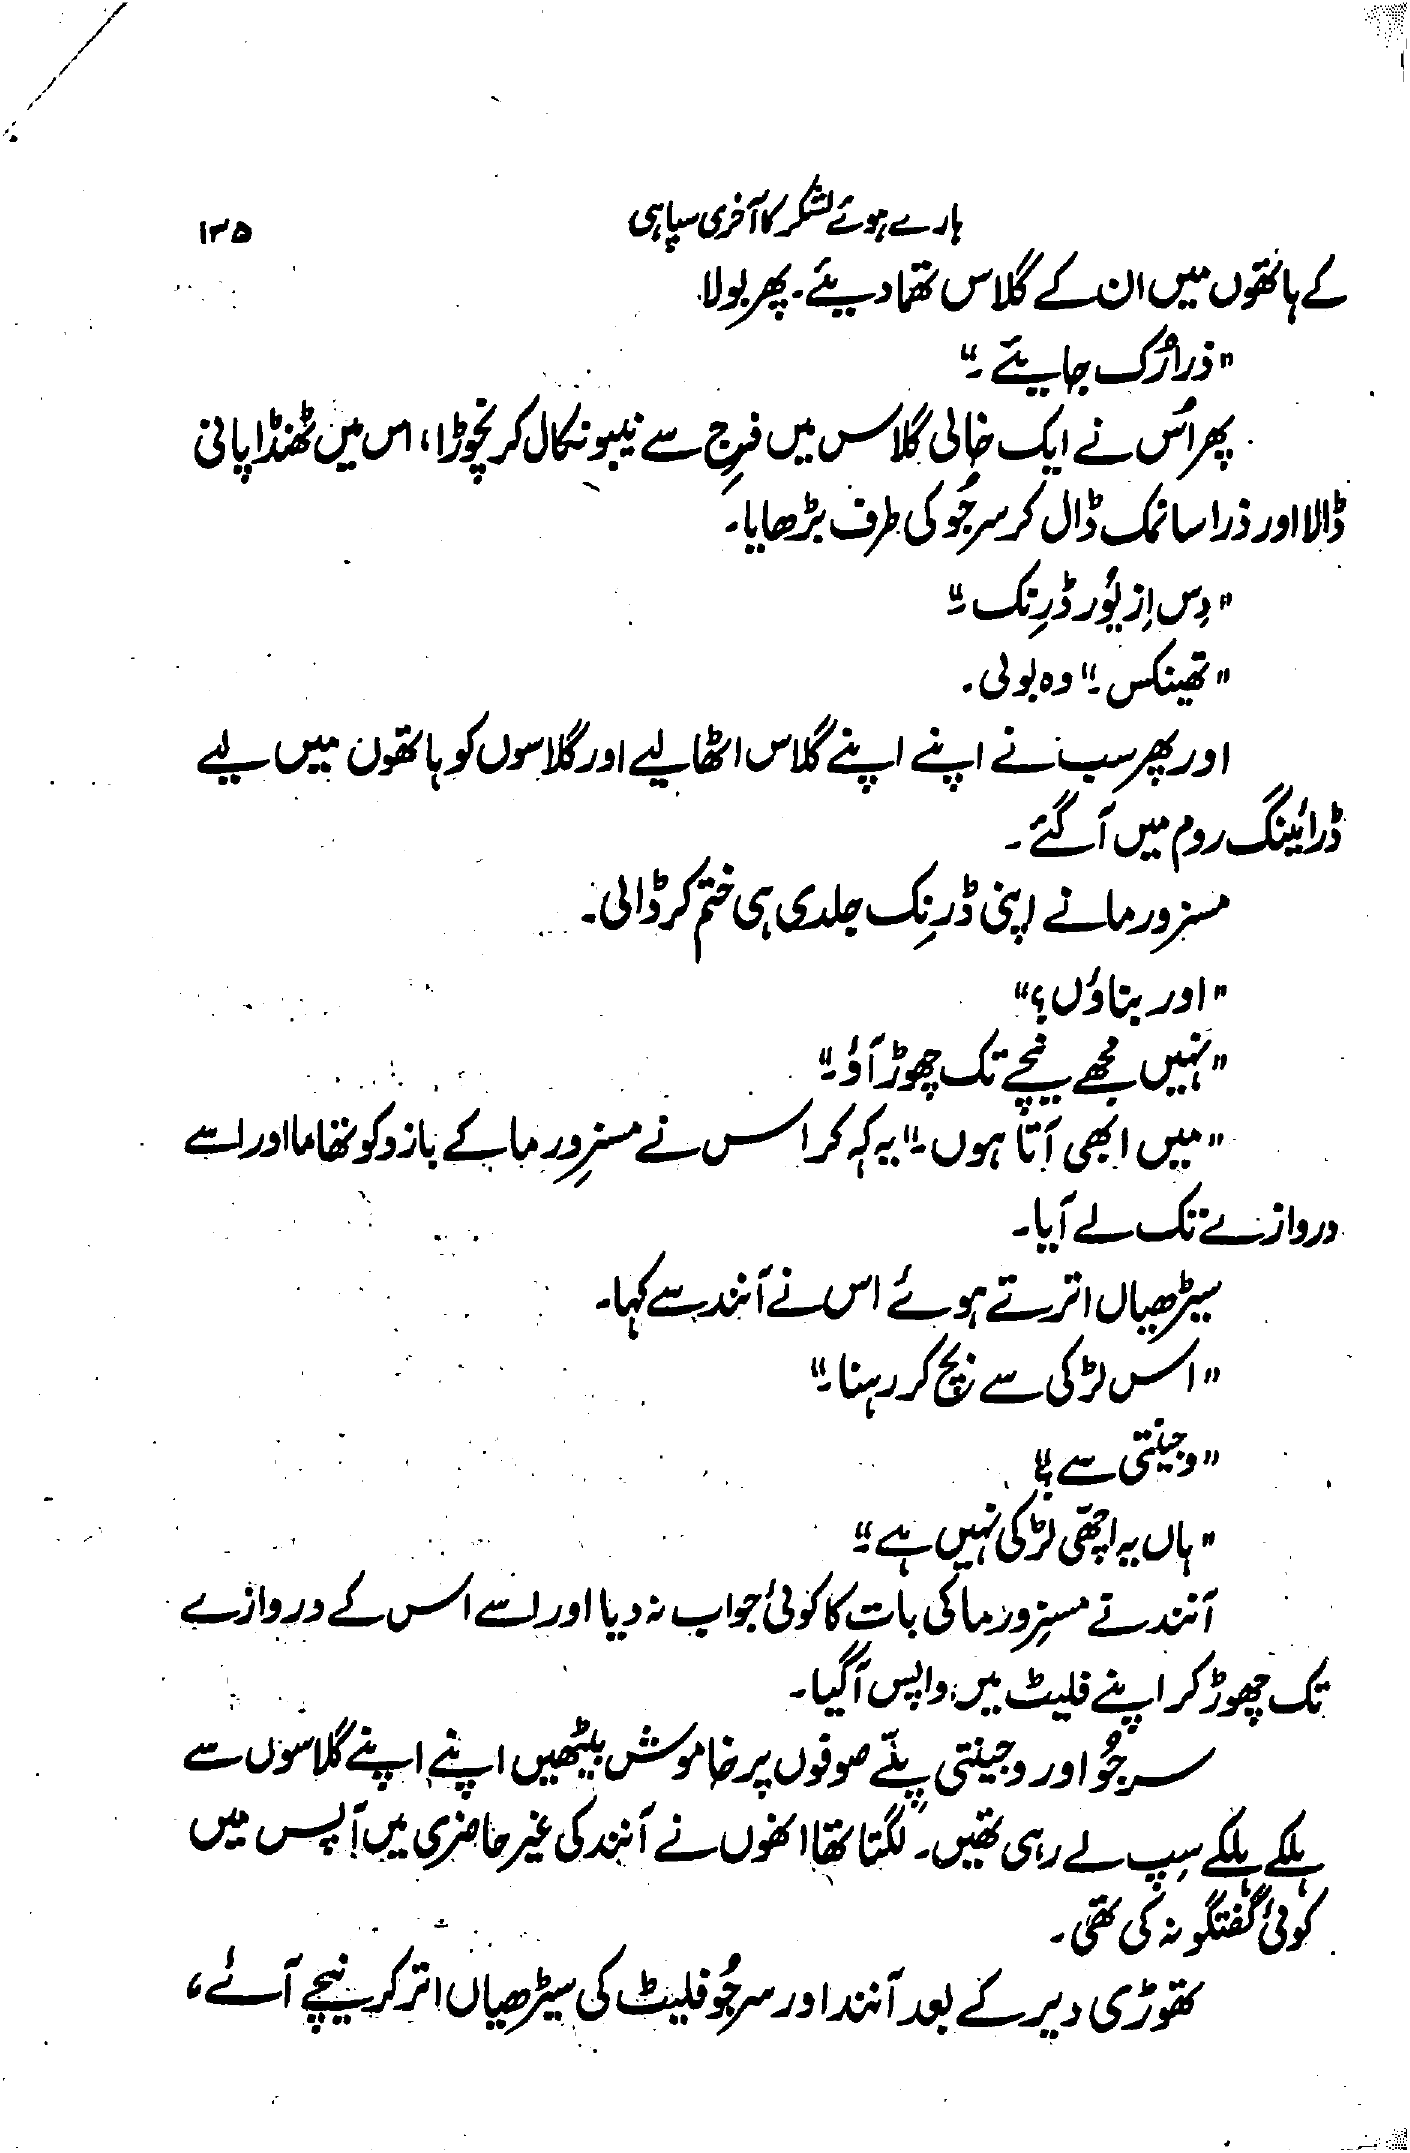 ہارے ہوئے لشکر کا آخری سپاہی ۱۳۵
کے ہاتھوں میں ان کے گلاس تھما دیئے۔ پھر بولا
"ذرا رُک جایئے۔"
پھر اُس نے ایک خالی گلاس میں فرِج سے نیبو نکال کر نچوڑا، اس میں ٹھنڈا پانی
ڈالا اور ذرا سا نمک ڈال کر سرجُو کی طرف بڑھایا۔
"دِس اِز یُور ڈرِنک۔"
"تھینکس۔" وہ بولی۔
اور پھر سب نے اپنے اپنے گلاس اٹھا لیے اور گلاسوں کو ہاتھوں میں لیے
ڈرائینگ روم میں آ گئے۔
مسز ورما نے اپنی ڈرنِک جلدی ہی ختم کر ڈالی۔
"اور بناؤں؟"
"نہیں مجھے نیچے تک چھوڑ آؤ۔"
"میں ابھی آتا ہوں۔" یہ کہہ کر اس نے مسز ورما کے بازو کو تھاما اور اسے
دروازے تک لے آیا۔
سیڑھیاں اترتے ہوئے اس نے آنند سے کہا۔
"اس لڑکی سے بچ کر رہنا۔"
"وجینتی سے؟"
"ہاں یہ اچھّی لڑکی نہیں ہے۔"
آنند نے مسز ورما کی بات کا کوئی جواب نہ دیا اور اسے اس کے دروازے
تک چھوڑ کر اپنے فلیٹ میں واپس آ گیا۔
سرجُو اور وجینتی پنّے صوفوں پر خاموش بیٹھیں اپنے اپنے گلاسوں سے
ہلکے ہلکے سِپ لے رہی تھیں۔ لگتا تھا انھوں نے آنند کی غیر حاضری میں آپس میں
کوئی گفتگو نہ کی تھی۔
تھوڑی دیر کے بعد آنند اور سرجُو فلیٹ کی سیڑھیاں اتر کر نیچے آئے،